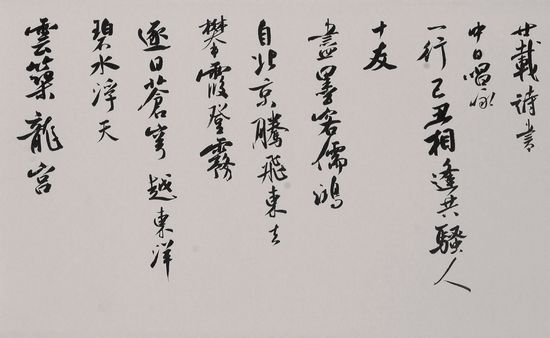 廿載詩書
中日唱詠
一行己丑相逢共騷人
十友
盡墨客儒鴻
自北京騰飛東去
攀霞登霧
逐日蒼穹越東洋
碧水浮天
雲築龍宮